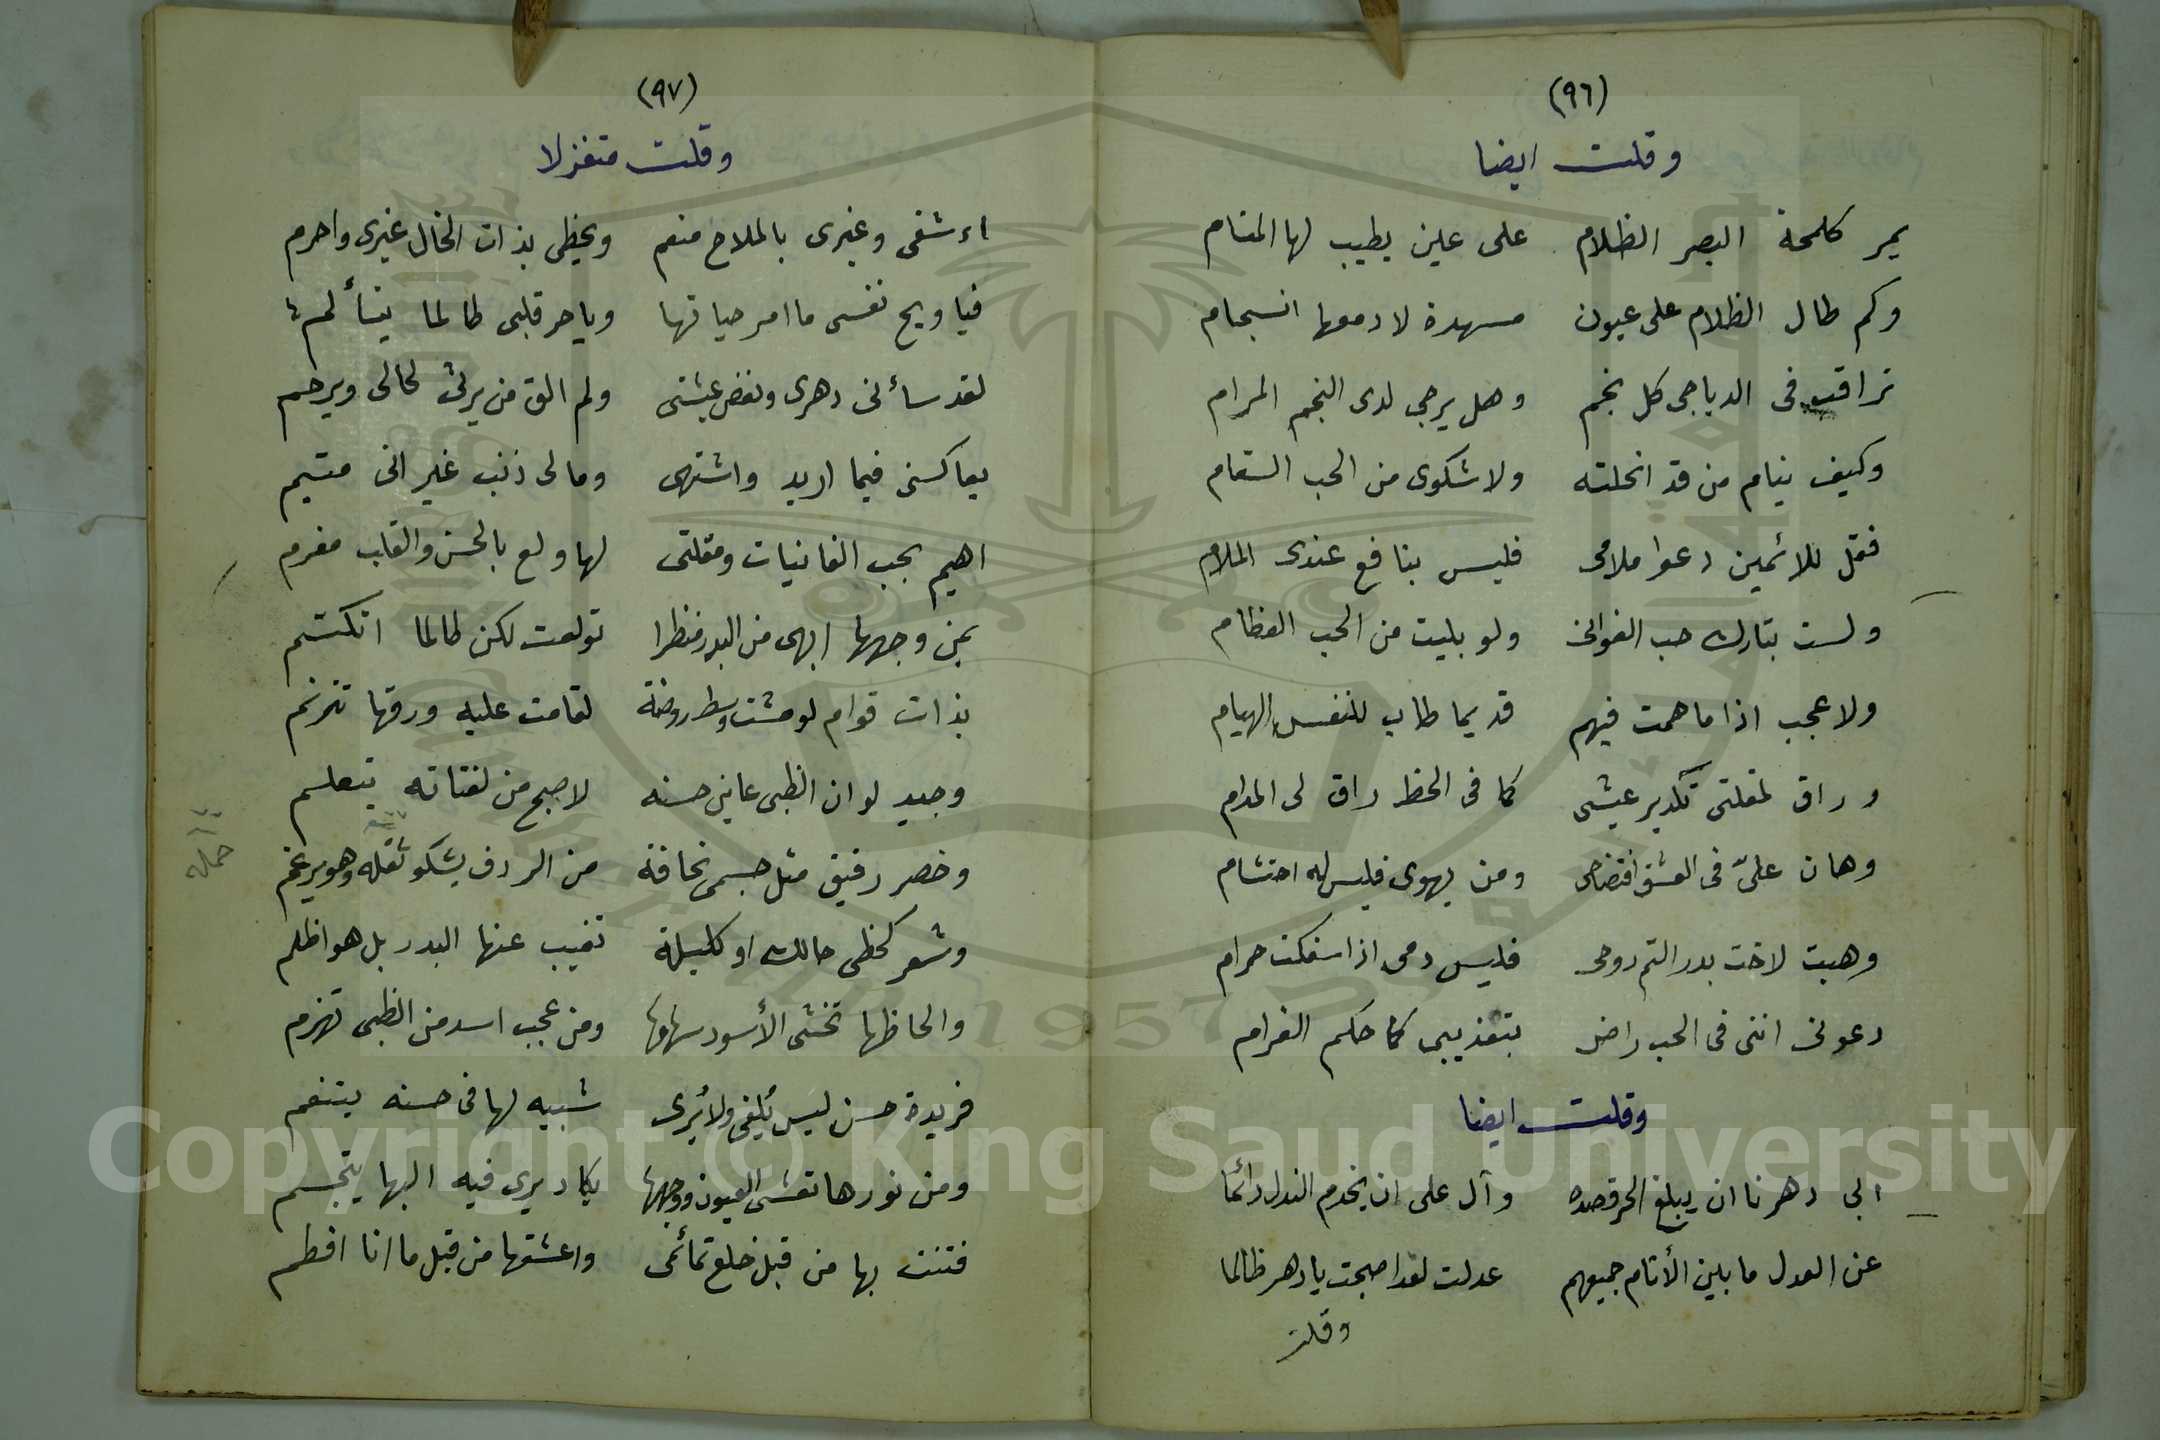 (٩٦)
وقلت ايضا
يمر كلمحة البصر الظلام على عين يطيب لها المنام
وكم طال الظلام على عيون مسهدة لادمعها انسجام
تراقب فى الدياجى كل نجم وهل يرجى لدى النجم المرام
وكيف ينام من قد انحلته ولا شكوى من الحب السقام
فقل للائمين دعوا ملامى فليس بنافع عندى الملام
ولست بتارك حب الغوانى ولو بليت من الحب العظام
ولا عجب اذا ما همت فيهم قديما طاب للنفس الهيام
وراق لمقلتى تكدير عيشى كما فى الحظ راق لى المدام
وهان علىّ فى العشق افتضاحى ومن يهوى فليس له احتشام
وهبت لاخت بدر التم روحى فليس دمى اذا سفكت حرام
دعونى اننى فى الحب راض بتعذيبى كما حكم الغرام
وقلت ايضا
ابى دهرنا ان يبلغ الحر قصده وآل على ان يخدم النذل دائما
عن العدل ما بين الأنام جميعهم عدلت لقد اصبحت يا دهر ظالما
وقلت
(٩٧)
وقلت متغزلا
اءشقى وغيرى بالملاح منعم ويحظى بذات الخال غيرى واحرم
فيا ويح نفسى ما امر حياتها ويا حر قلبى طالما يتألم
لقد سأنى دهرى ونغض عيشتى ولم الق من يرثى لحالى ويرحم
يعاكسنى فيما اريد واشتهى وما لى ذنب غير انى متيم
اهيم بحب الغانيات ومقلتى لها ولع بالحسن والقلب مغرم
بمن وجهها ابهى من البدر منظرا تولعت لكن طالما اتكتم
بذات قوام لو مشت وسط روضة لقامت عليه ورقها تترنم
وجيد لو ان الظبى عاين حسنه لاصبح من لفتاته يتعلم
وخصر رقيق مثل جسمى نحافة من الردف يشكو ثقله وهو يرغم
وشعر كحظى حالك او كليلة تغيب عنها البدر بل هو اظلم
والحاظها تخشى الأسود سهامها ومن عجب اسد من الظبى تهزم
فريدة حسن ليس يُلفى ولا يُرى شبيه لها فى حسنه يتنعم
ومن نورها تعشى العيون ووجهها يكاد يرى فيه البها يتجسم
فتنت بها من قبل خلع تمائمى واعشقها من قبل ما انا افطم
Copyright © King Saud University
1957